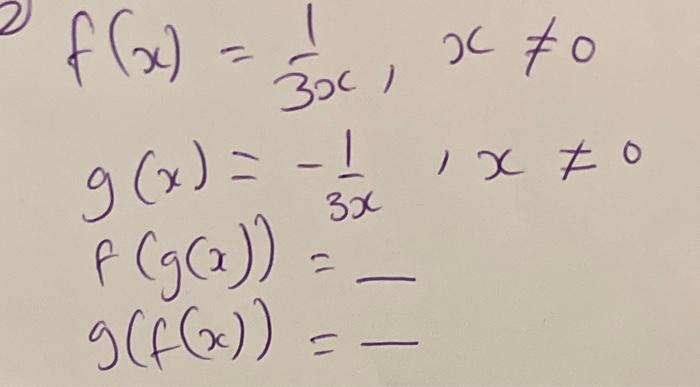 2) f(x) = 1/3x, x ≠ 0
g(x) = -1/3x, x ≠ 0
f(g(x)) = __
g(f(x)) = __